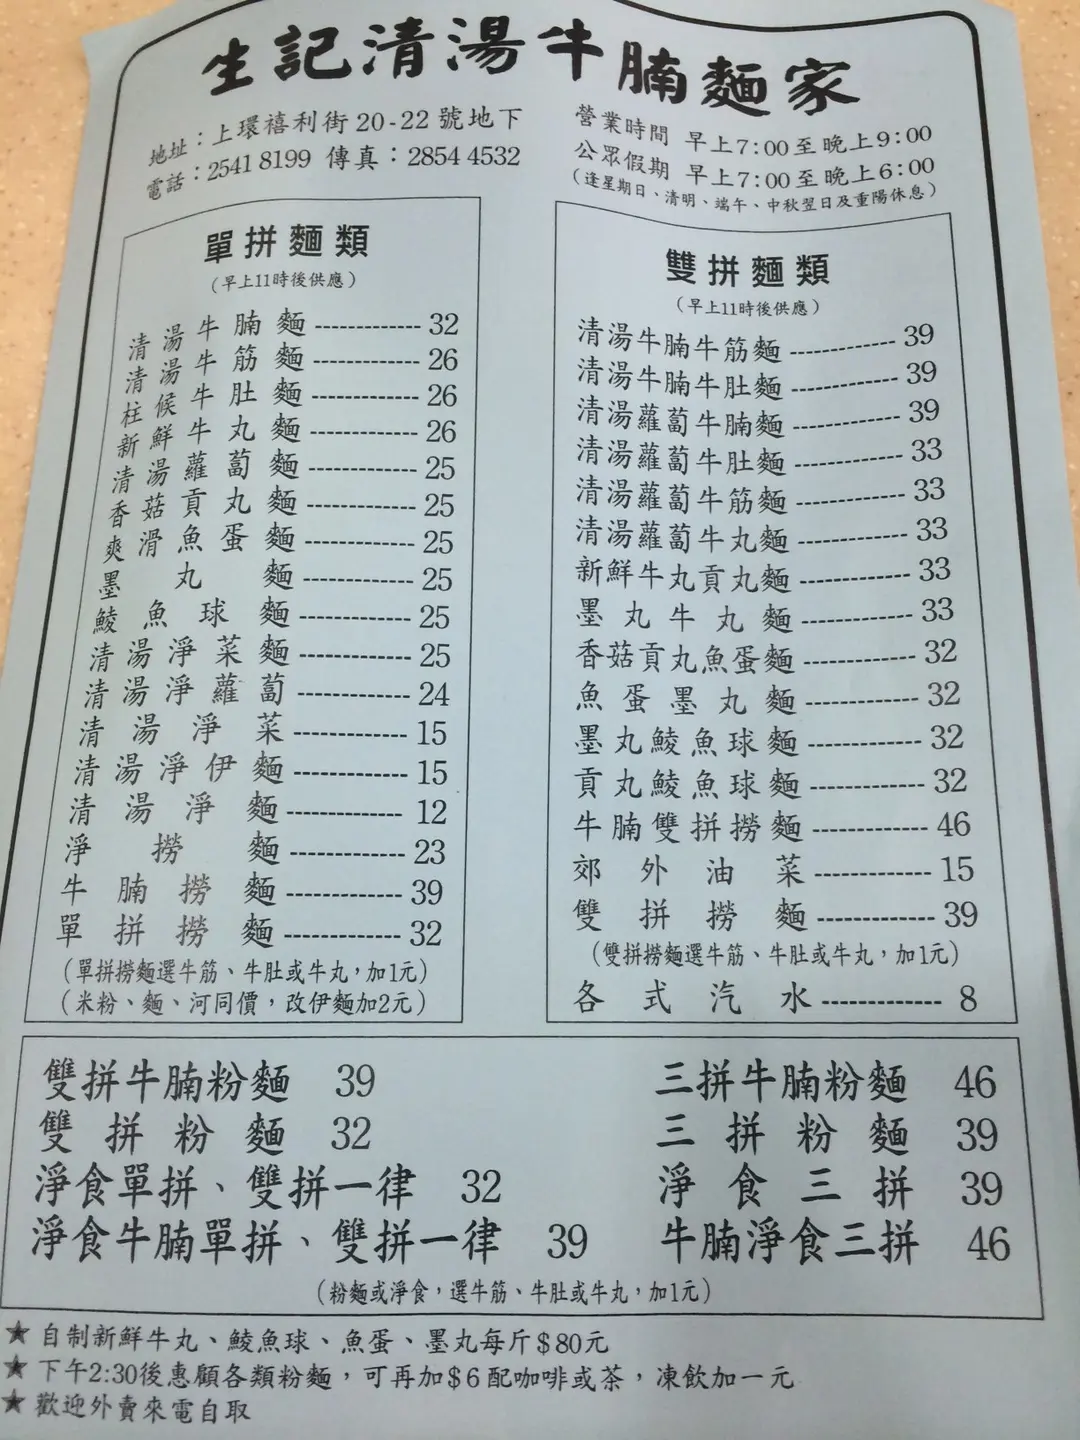 生記清湯牛腩麵家
地址：上環禧利街20-22號地下
電話：2541 8199 傳真：2854 4532
營業時間 早上7:00至晚上9:00
公眾假期 早上7:00至晚上6:00
（逢星期日、清明、端午、中秋翌日及重陽休息）
單拼麵類
（早上11時後供應）
清湯牛腩麵 32
清湯牛筋麵 26
柱候牛肚麵 26
新鮮牛丸麵 26
清湯蘿蔔麵 25
香菇貢丸麵 25
爽滑魚蛋麵 25
墨丸麵 25
鯪魚球麵 25
清湯淨菜麵 25
清湯淨蘿蔔 24
清湯淨菜 15
清湯淨伊麵 15
清湯淨麵 12
淨撈麵 23
牛腩撈麵 39
單拼撈麵 32
（單拼撈麵選牛筋、牛肚或牛丸，加1元）
（米粉、麵、河同價，改伊麵加2元）
雙拼麵類
（早上11時後供應）
清湯牛腩牛筋麵 39
清湯牛腩牛肚麵 39
清湯蘿蔔牛腩麵 39
清湯蘿蔔牛肚麵 33
清湯蘿蔔牛筋麵 33
清湯蘿蔔牛丸麵 33
新鮮牛丸貢丸麵 33
墨丸牛丸麵 33
香菇貢丸魚蛋麵 32
魚蛋墨丸麵 32
墨丸鯪魚球麵 32
貢丸鯪魚球麵 32
牛腩雙拼撈麵 46
郊外油菜 15
雙拼撈麵 39
（雙拼撈麵選牛筋、牛肚或牛丸，加1元）
各式汽水 8
雙拼牛腩粉麵 39
雙拼粉麵 32
淨食單拼、雙拼一律 32
淨食牛腩單拼、雙拼一律 39
三拼牛腩粉麵 46
三拼粉麵 39
淨食三拼 39
牛腩淨食三拼 46
（粉麵或淨食，選牛筋、牛肚或牛丸，加1元）
★自制新鮮牛丸、鯪魚球、魚蛋、墨丸每斤$80元
★下午2:30後惠顧各類粉麵，可再加$6配咖啡或茶，凍飲加一元
★歡迎外賣來電自取